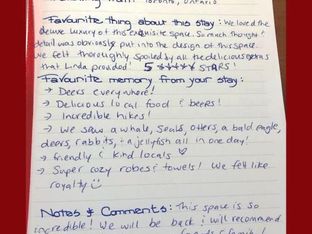 from: Toronto, Ontario
Favourite thing about this stay: We loved the
deluxe luxury of this exquisite space. So much thought &
detail was obviously put into the design of this space.
We felt thoroughly spoiled by all the delicious extras
that Linda provided! 5 STARS!
Favourite memory from your stay:
→ Deers everywhere!
→ Delicious local food & beers!
→ Incredible hikes!
→ We saw a whale, seals, otters, a bald eagle,
deers, rabbits, & a jellyfish all in one day!
→ friendly & kind locals ♡
→ Super cozy robes & towels! We felt like
royalty ☺
Notes & Comments: This space is so
incredible! We will be back & will recommend
family!